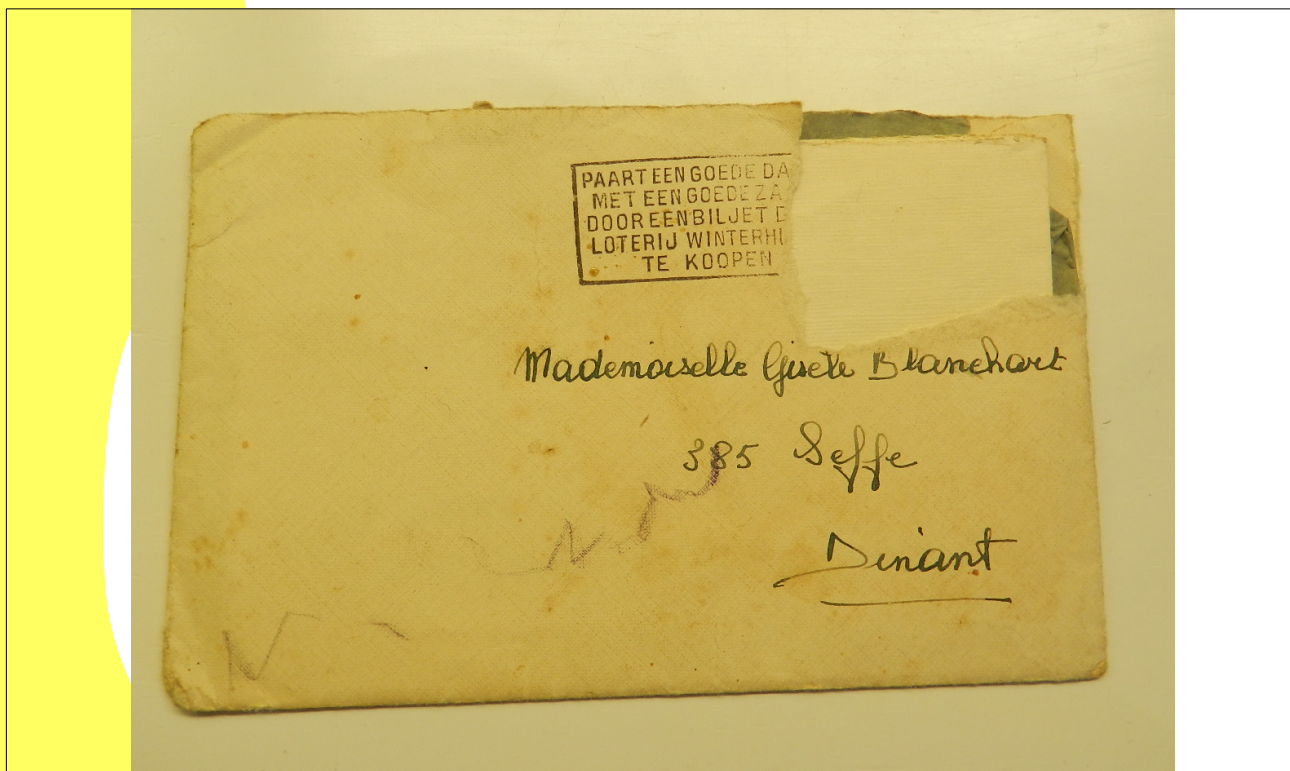 PAART EEN GOEDE DA
MET EEN GOEDE ZA
DOOR EEN BILJET D
LOTERIJ WINTERHU
TE KOOPEN
Mademoiselle Gisèle Blanchart
385 Leffe
Dinant